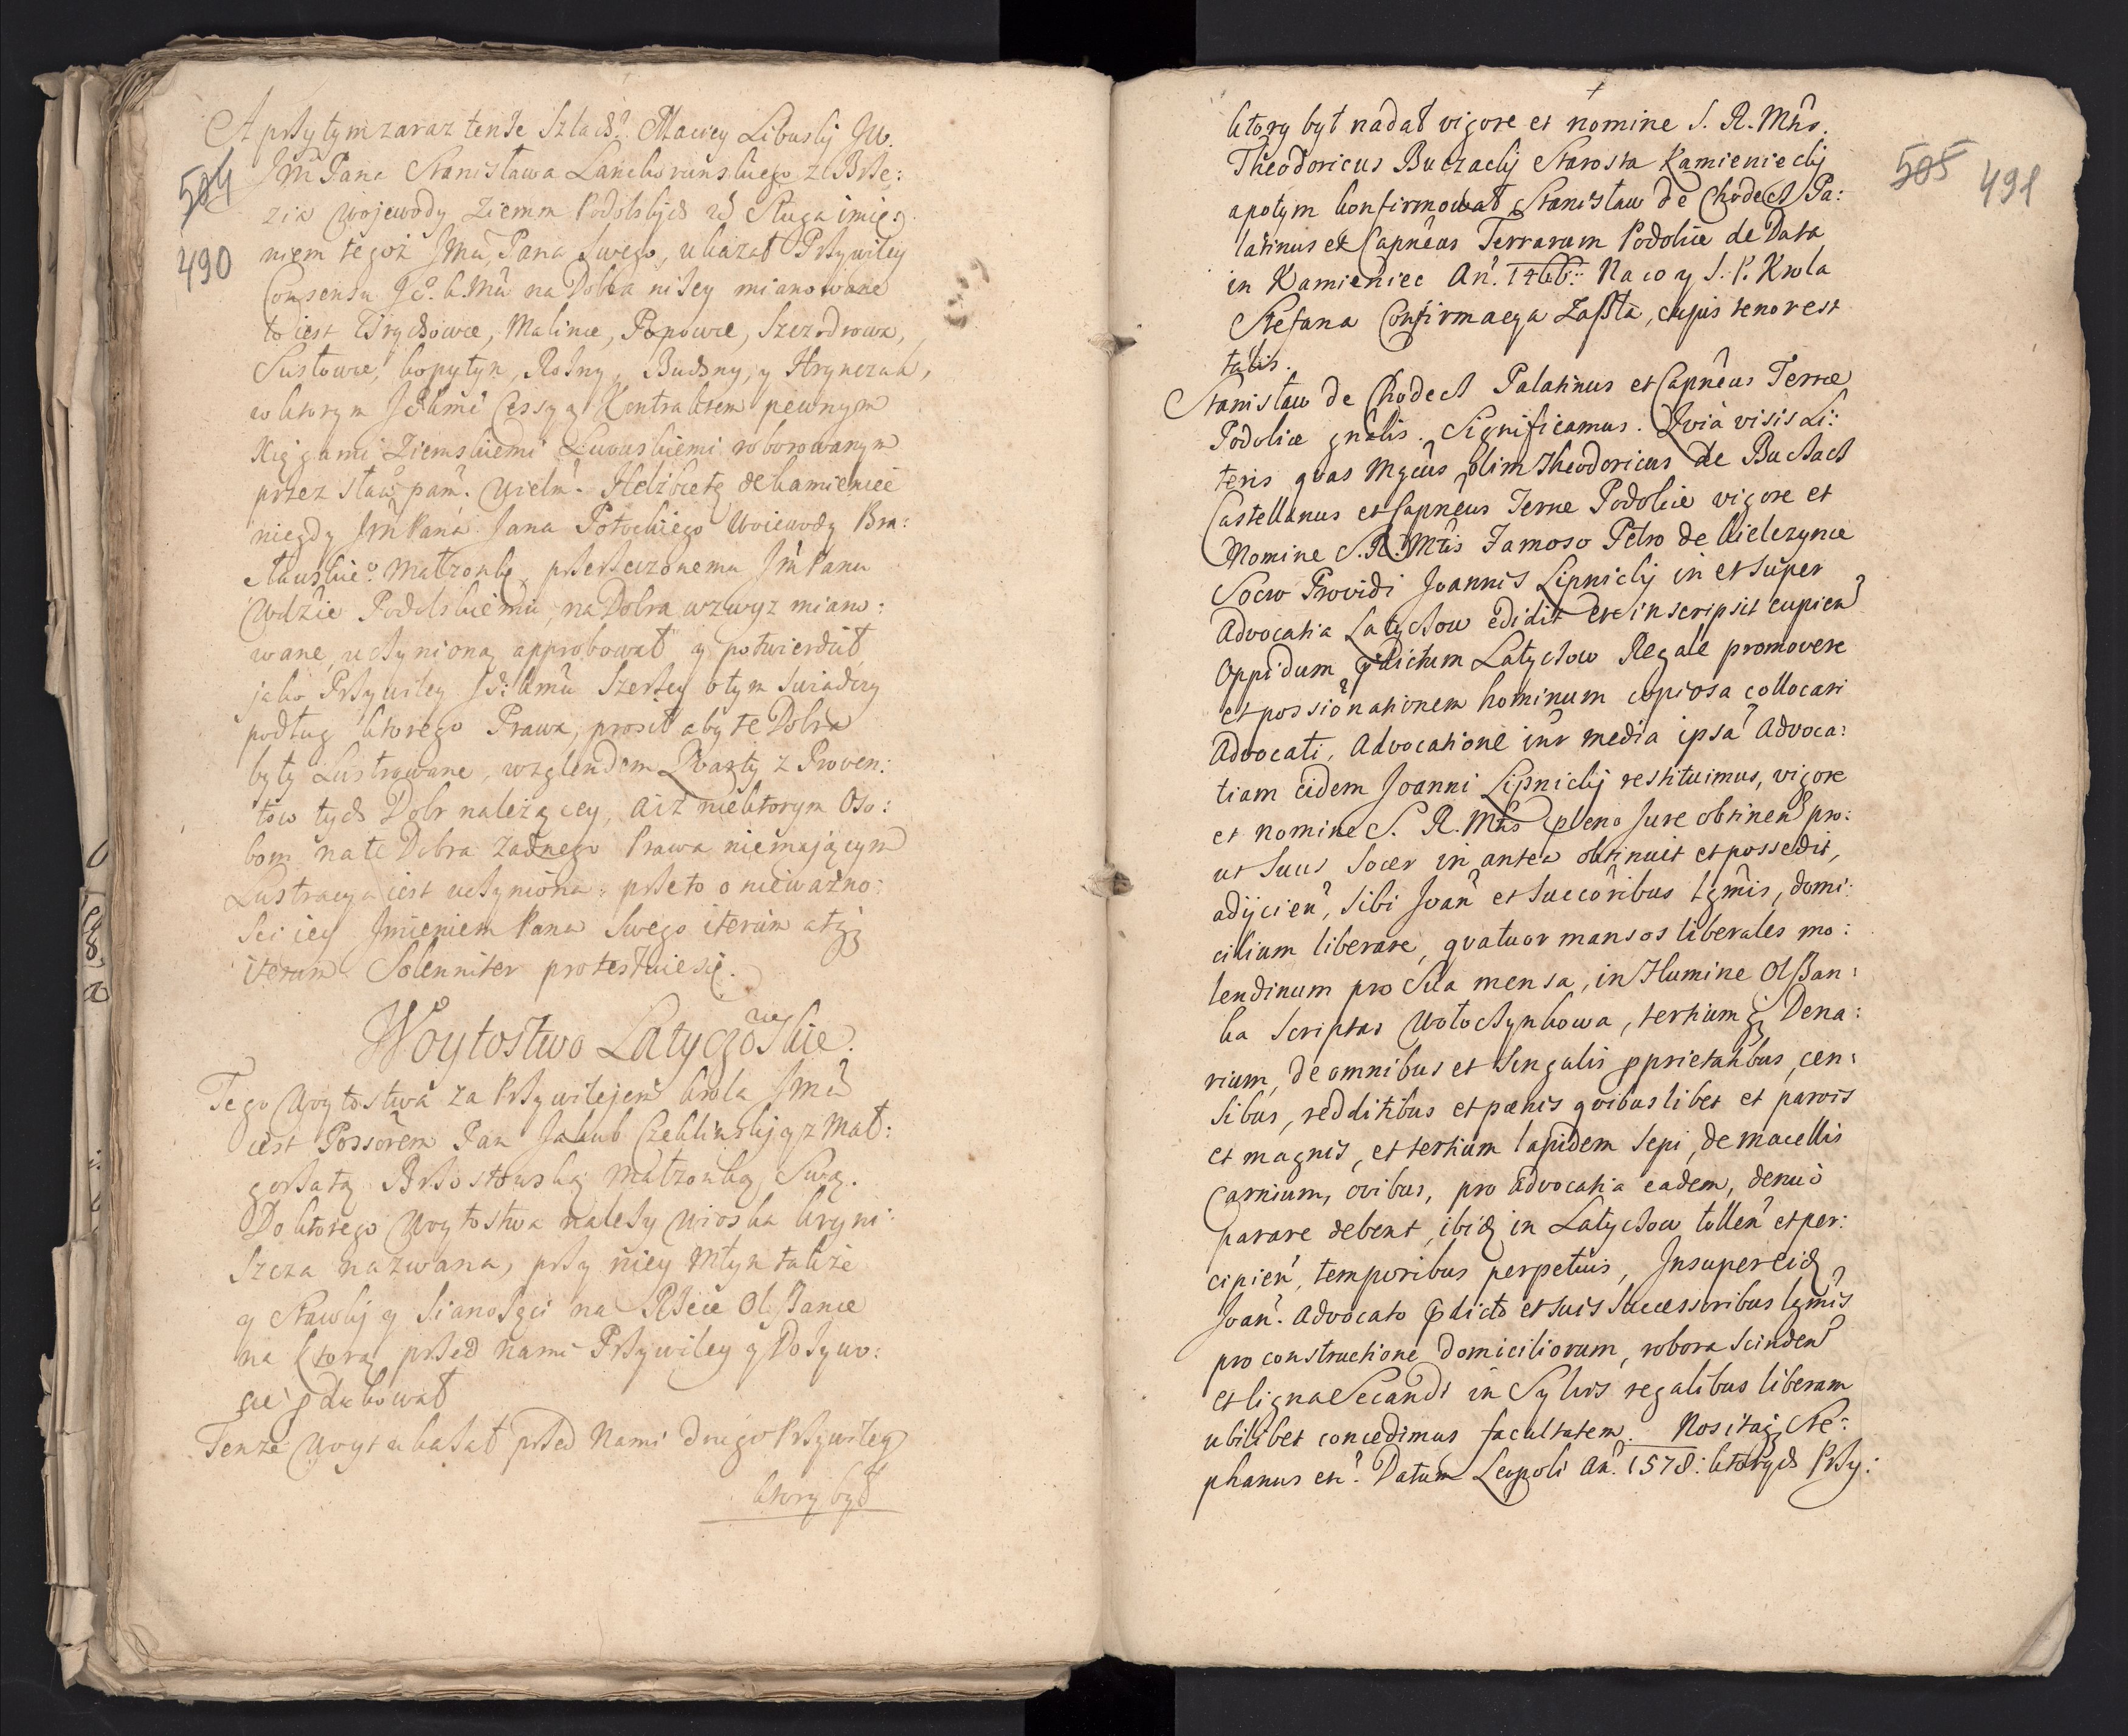 A przytym zaraz tenże Szlach: Maciey Libuski JW.
504
Jm̃ Pana Stanisława Lanckorunskiego z Brze:
zia Wojewody Ziemm Podolskich Sługa imie:
490
niem tegoż Jm̃ Pana Swego, ukazał Przywiley
Consensu na Dobra niżey mianowane
to iest Malince, Popowce, Szczodrowa,
Susłowce, kopytyn, Rożny, Buchny, y Hrynczuk,
w ktorym Cessyą Kontraktem pewnym
Xięgami Ziemskiemi roborowanym
przez sław: pam: Wielm: Helżbietę de kamieniec
niegdy Jm̃ Pana Jana Potockiego Woiewody Bra:
cławskie: Małżonkę przerzeczonemu Jm̃ Panu
Wdzie Podolskiemu, na Dobra wzwyz miano:
wane, uczynioną approbował y potwierdził
jako Przywiley szerzey o tym swiadczy
podług ktorego Prawa, prosił aby te Dobra
były Lustrowane, wzglendem Qvarty z Proven:
tow tych Dobr należącey, aiż niektorym Oso:
bom na te Dobra żadnego Prawa niemającym
Lustracya iest uczyniona: przeto o nieważno:
sci iey Jmieniem Pana Swego iterum atq;
iterum Solenniter protestuie się.
Woytostwo Latyczowskie.
Tego Woytostwa za Przywilejem krola Jm̃
iest Possorem Pan Jakub Czeklinski y z Mał:
gorzatą Brzostowską Małżonką Swą.
Do ktorego Woytostwa należy wioska kryni:
szcza nazwana, przy niey Młyn także
y Stawki y Sianożęci na Rzece Olszance
na ktorą przed nami Przywiley y Dożywo:
cie pdukował
Tenże Woyt ukazał przed Nami drugi Przywiley
ktory był
ktory był nadał vigore et nomine S. R. Mtis.
Theodoricus Buczacki Starosta Kamieniecki
505 491
apotym konfirmował Stanisław de Chodecz Pa:
latinus et Capneus Terrarum Podoliæ de Data
in Kamieniec An: 1466: Na co y S. P. Krola
Stefana Confirmacya zaszła, cujus tenor est
talis.
Stanislaw de Chodecz Palatinus et Capneus Terræ
Podoliæ gnalis. Significamus. Qvia visis Li:
teris qvas Mgcus olim Theodoricus de Buczacz
Castellanus et Capneus Terræ Podoliæ vigore et
Nomine S. R. Mtis Famoso Petro de Kielczynce
Socro Providi Joannis Lipnicki in et super
Advocatia Latyczow edidit et inscripsit cupien
Oppidum pdictum Latyczow Regale promovere
et possionationem hominum copiosa collocari
Advocati, Advocatione inr media ipsa Advoca:
tiam eidem Joanni Lipnicki restituimus, vigore
et nomine S. R. Mtis pleno Jure obtinen pro:
ut suus Socer in antea obtinuit et possedit,
adijcien, sibi Joan et succoribus lgmis, domi:
cilium liberare, qvatuor mansos liberales mo:
lendinum pro sua mensa, in Flumine Olszan:
ka scriptas Wołoczynkowa, tertium q; Dena:
rium, de omnibus et singulis pprietatibus, cen:
sibus, redditibus et pænis qvibuslibet et parvis
et magnis, et tertium lapidem sepi, de macellis
Carnium, ovibus, pro advocatia eadem, denuo
parare debent, ibiq in Latyczow tollen et per:
cipien, temporibus perpetuis, Insuper eid
Joan. Advocato pdicto et suis successoribus lgmis
pro constructione domiciliorum, robora scinden
et ligna secandi in Sylvis regalibus liberam
ubilibet concedimus facultatem. Nos itaq; Ste:
phanus etc. Datum Leopoli An. 1578: ktorych Przy: